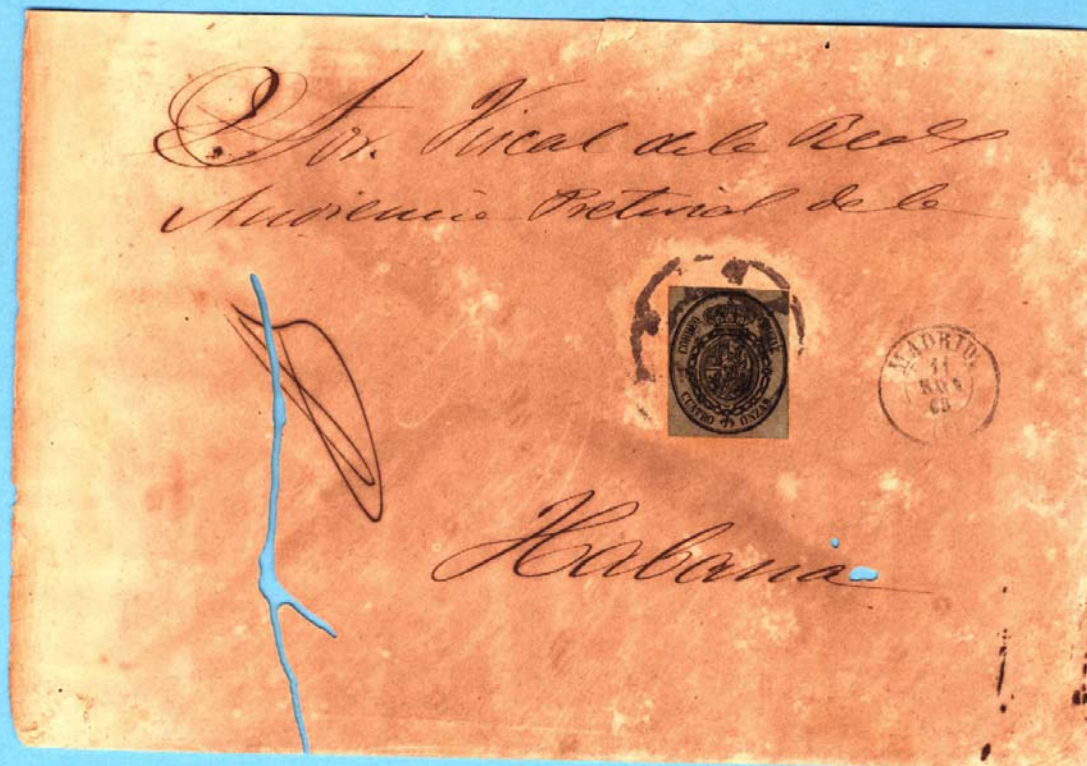 Sor. Fiscal de la Real
Audiencia Pretorial de la
CORREO OFICIAL
CUATRO ONZAS
MADRID
11
NOV
68
Habana